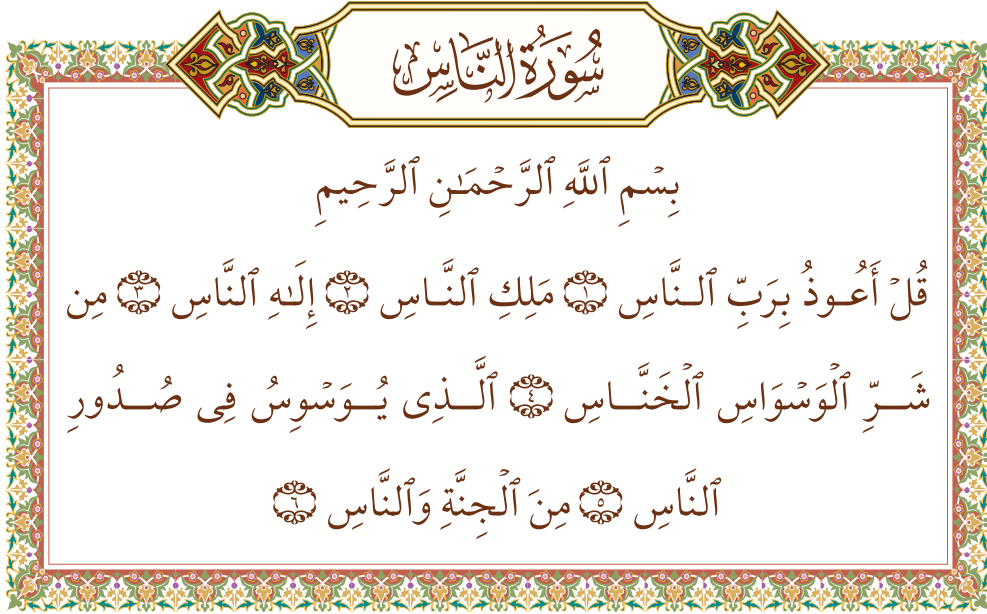 سُورَةُ النَّاسِ
بِسْمِ ٱللَّهِ ٱلرَّحْمَـٰنِ ٱلرَّحِيمِ
قُلْ أَعُـوذُ بِرَبِّ ٱلـنَّاسِ ١ مَلِكِ ٱلنَّـاسِ ٢ إِلَـٰهِ ٱلنَّاسِ ٣ مِن
شَـــرِّ ٱلْوَسْوَاسِ ٱلْخَنَّـــاسِ ٤ ٱلَّـــذِى يُـــوَسْوِسُ فِى صُـــدُورِ
ٱلنَّاسِ ٥ مِنَ ٱلْجِنَّةِ وَٱلنَّاسِ ٦